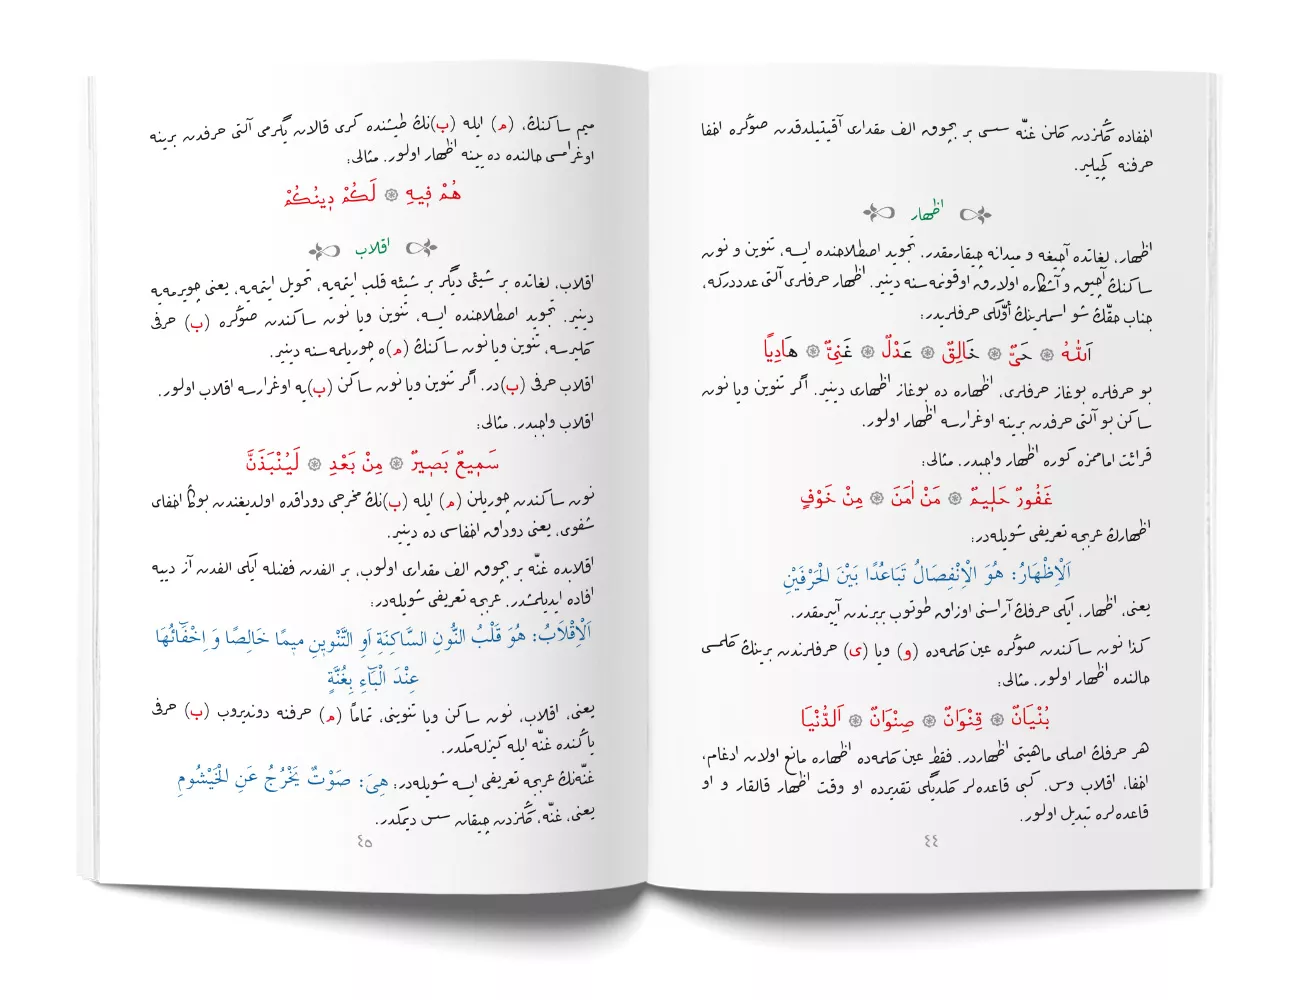 اخفاده گڭزدن گلن غنّه سسى بر بچوق الف مقدارى آقيتيلدقدن صوڭره اخفا
حرفنه گچيلير.
اظهار
اظهار، لغاتده آچيغه و ميدانه چيقارمقدر. تجويد اصطلاحنده ايسه، تنوين و نون
ساكنڭ آچيق و آشكاره اولارق اوقونمه‌سنه دينير. اظهار حرفلرى آلتى عدددركه،
جناب حقّڭ شو اسملرينڭ أوّلكى حرفلريدر:
اَللّٰهُ ۞ حَىٌّ ۞ خَالِقٌ ۞ عَدْلٌ ۞ غَنِىٌّ ۞ هَادِيًا
بو حرفلره بوغاز حرفلرى، اظهاره ده بوغاز اظهارى دينير. اگر تنوين ويا نون
ساكن بو آلتى حرفدن برينه اوغرارسه اظهار اولور.
قرائت اماممزه گوره اظهار واجبدر. مثالى:
غَفُورٌ حَلِيمٌ ۞ مَنْ اٰمَنَ ۞ مِنْ خَوْفٍ
اظهارڭ عربجه تعريفى شويله‌در:
اَلْاِظْهَارُ: هُوَ الْاِنْفِصَالُ تَبَاعُدًا بَيْنَ الْحَرْفَيْنِ
يعنى، اظهار، ايكى حرفڭ آراسنى اوزاق طوتوب بربرندن آييرمقدر.
كذا نون ساكندن صوڭره عين كلمه‌ده (و) ويا (ى) حرفلرندن برينڭ گلمسى
حالنده اظهار اولور. مثالى:
بُنْيَانٌ ۞ قِنْوَانٌ ۞ صِنْوَانٌ ۞ اَلدُّنْيَا
هر حرفڭ اصلى ماهيتى اظهاردر. فقط عين كلمه‌ده اظهاره مانع اولان ادغام،
اخفا، اقلاب وس. گبى قاعده‌لر گلديگى تقديرده او وقت اظهار قالقار و او
قاعده‌لره تبديل اولور.
٤٤
ميم ساكنڭ، (م) ايله (ب)نڭ طيشنده گرى قالان يگرمى آلتى حرفدن برينه
اوغرامسى حالنده ده يينه اظهار اولور. مثالى:
هُمْ فِيهِ ۞ لَكُمْ دِينُكُمْ
اقلاب
اقلاب، لغاتده بر شيئى ديگر بر شيئه قلب ايتمه‌يه، تحويل ايتمه‌يه، يعنى چويرمه‌يه
دينير. تجويد اصطلاحنده ايسه، تنوين ويا نون ساكندن صوڭره (ب) حرفى
گلیرسه، تنوين ويا نون ساكنڭ (م)ه چوريلمه‌سنه دينير.
اقلاب حرفى (ب)در. اگر تنوين ويا نون ساكن (ب)يه اوغرارسه اقلاب اولور.
اقلاب واجبدر. مثالى:
سَمِيعٌ بَصِيرٌ ۞ مِنْ بَعْدِ ۞ لَيُنْبَذَنَّ
نون ساكندن چوريلن (م) ايله (ب)نڭ مخرجى دوداقده اولديغندن بوڭا اخفاى
شفوى، يعنى دوداق اخفاسى ده دينير.
اقلابده غنّه بر بچوق الف مقدارى اولوب، بر الفدن فضله ايكى الفدن آز دييه
افاده ايديلمشدر. عربجه تعريفى شويله‌در:
اَلْاِقْلَابُ: هُوَ قَلْبُ النُّونِ السَّاكِنَةِ اَوِ التَّنْوِينِ مِيمًا خَالِصًا وَ اِخْفَائُهَا
عِنْدَ الْبَآءِ بِغُنَّةٍ
يعنى، اقلاب، نون ساكن ويا تنوينى، تمامًا (م) حرفنه دونديروب (ب) حرفى
ياننده غنّه ايله گيزله‌مكدر.
غنّه‌نڭ عربجه تعريفى ايسه شويله‌در: هِىَ: صَوْتٌ يَخْرُجُ عَنِ الْخَيْشُومِ
يعنى، غنّه، گڭزدن چيقان سس ديمكدر.
٤٥